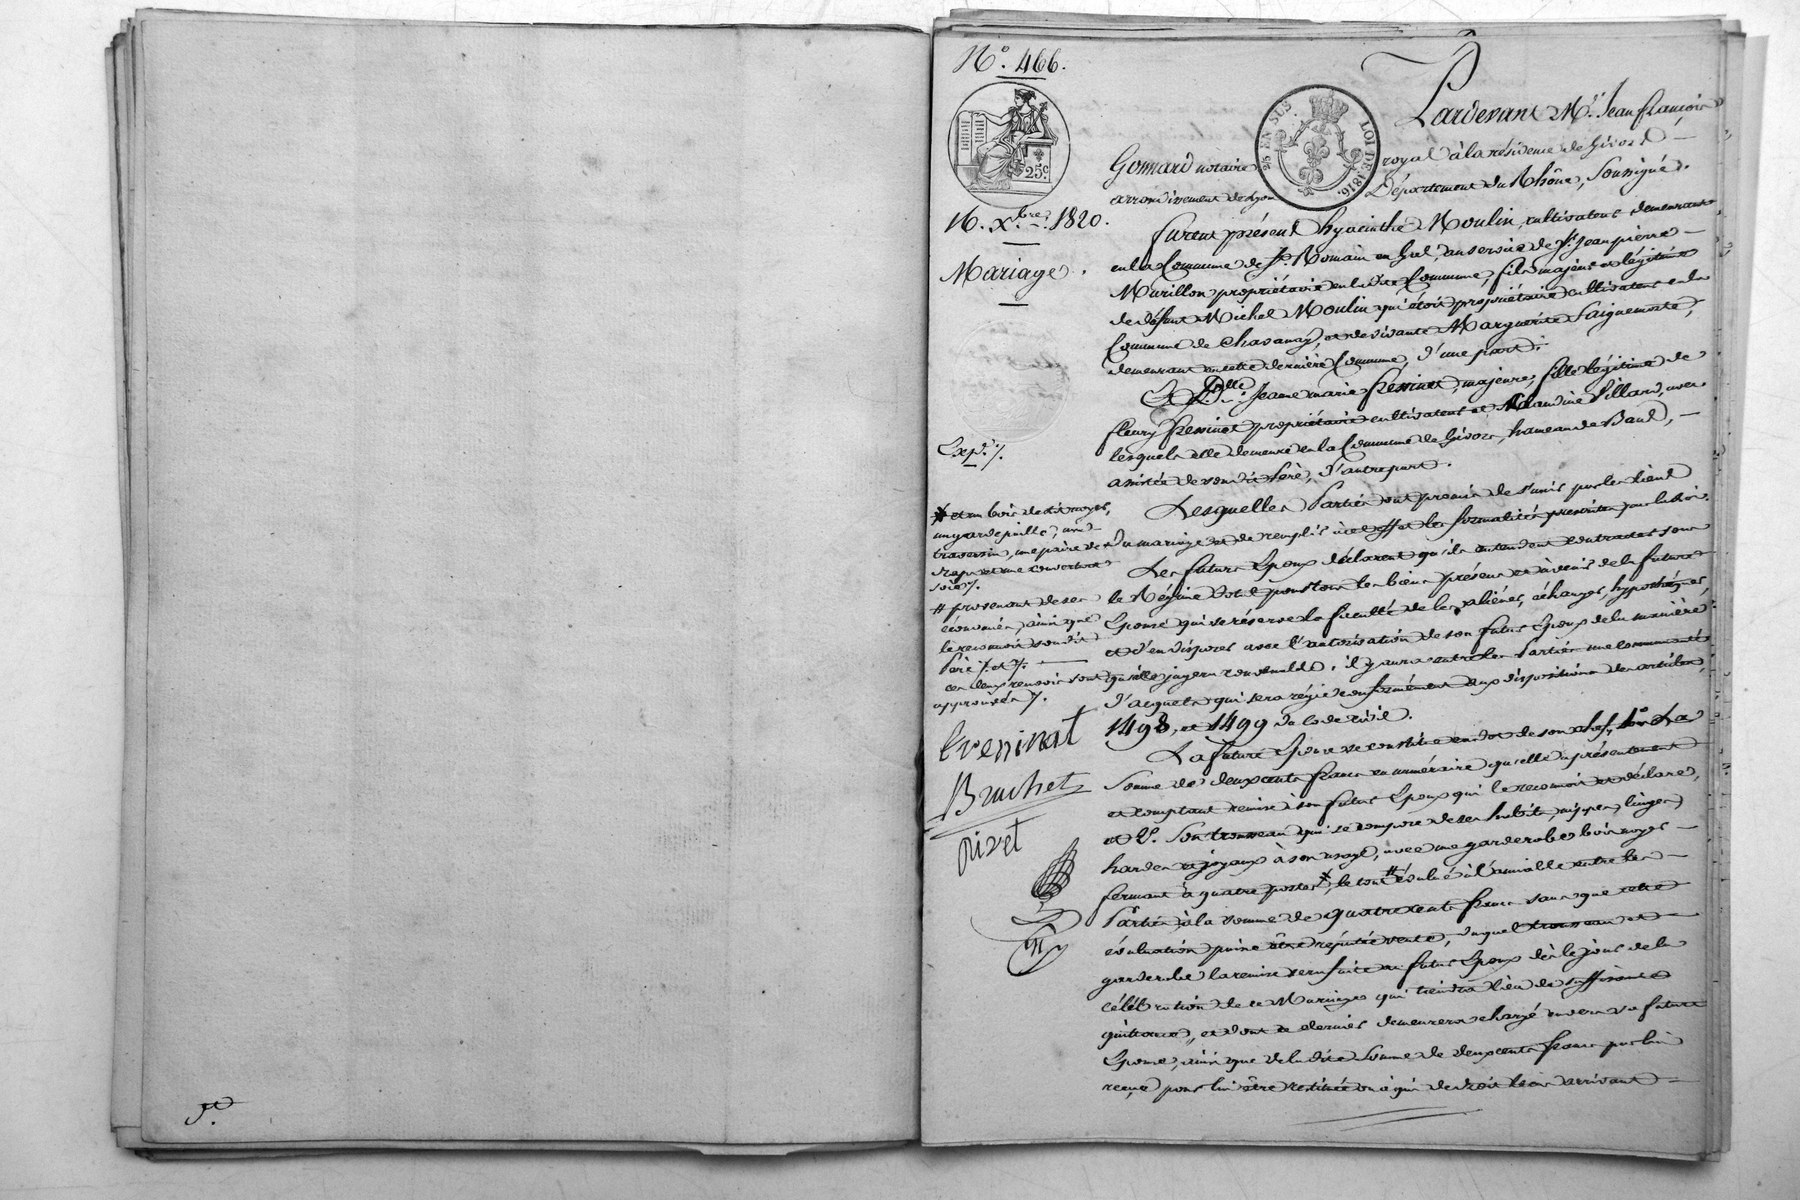 N.° 466.
25.c
25 EN SUS. LOI DE 1816.
16. X.bre 1820.
Mariage.
Exp.é ⁒.
Pardevant M.e Jean françois
Gonnard notaire royal à la résidence de Givors
arrondissement de Lyon Département du Rhône, soussigné.
furent présent hyacinthe Moulin, cultivateur demeurant
en la Commune de S.t Romain en Gal, au service de S.r Jean pierre
Murillon propriétaire en la dite Commune, fils majeur et légitime
de défunt Michel Moulin qui étoit propriétaire cultivateur en la
Commune de Chavanay, et de vivante Marguerite
demeurant en cette dernière Commune, d'une part;
Et D.lle Jeanne marie fressinet, majeure, fille légitime de
fleury fressinet propriétaire cultivateur et Claudine Villard, avec
lesquels elle demeure en la Commune de Givors, hameau de Band,
assistée de son dit Père, d'autre part.
Lesquelles Parties ont promis de s'unir par les liens
du mariage et de remplir à cet effet les formalités prescrites par la loi.
Les futurs Epoux déclarent qu'ils entendent contracter sous
le Régime Dotal pour tous les biens présens et à venir de la future
Epouse qui se réserve la faculté de les aliéner, échanger, hypothéquer,
et d'en disposer avec l'autorisation de son futur Epoux de la manière
qu'elle jugera convenable, il y aura entre les Parties une communauté
d'acquets qui sera régie conformément aux dispositions des articles
1498, et 1499 du Code civil.
La future Epouse se constitue en dot de son chef, 1.° La
Somme de deux cents francs en numéraire qu'elle a présentement
et comptant remise à son futur Epoux qui le reconnoit et déclare,
et 2.° Son trousseau qui se compose de ses habits, nippes, linges
hardes et joyaux à son usage, avec une garderobe bois noyer
fermant à quatre portes *, le tout # évalué à l'amiable entre les
Parties à la somme de quatre cents francs sans que cette
évaluation puisse être réputée vente, duquel trousseau et
garderobe la remise sera faite au futur Epoux dès le jour de la
célébration de ce Mariage qui tiendra lieu de suffisante
quittance, et dont ce dernier demeurera chargé envers sa future
Epouse, ainsi que de la dite somme de deux cents francs par lui
reçue, pour lui être restituée ou à qui de droit le cas arrivant
* et un bois de lit noyer,
un garde paille, un
traversin, une paire de
draps et une couverture
#. provenant de ses
économies, ainsi que
le reconnoit son dit
Père ⁒. et ⁒.
ces deux renvois sont
approuvés ⁒.
fressinat
Bruchet
pivet